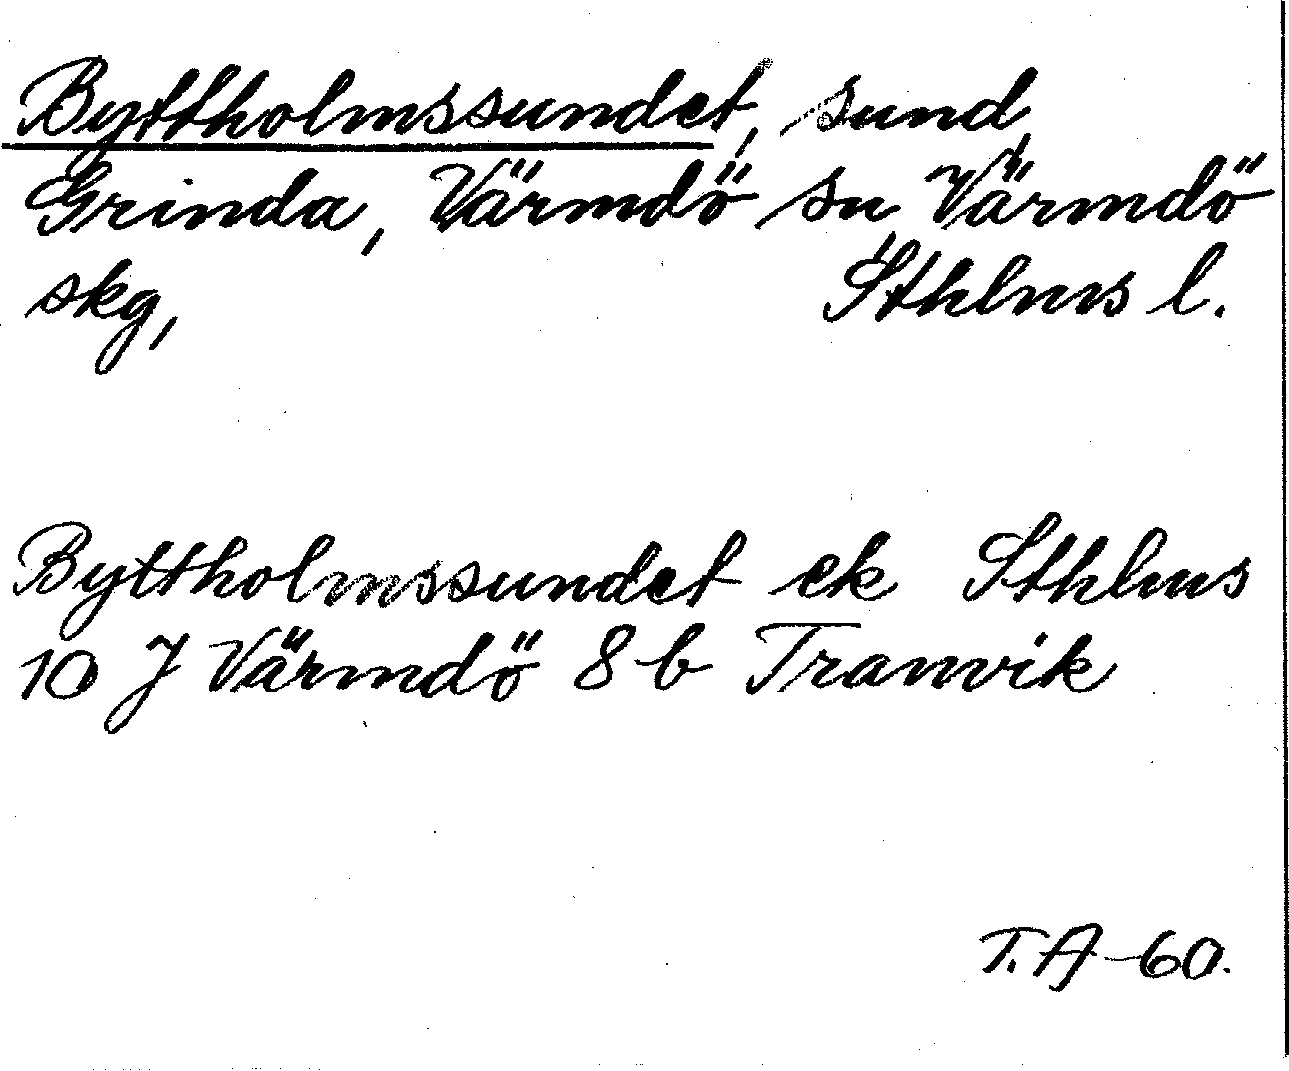 Byttholmssundet, sund,
Grinda, Värmdö su Värmdö
skg, Sthlms l.
Byttholmssundet ek Sthlms
10 J Värmdö 8 b Tranvik
T.A-60.